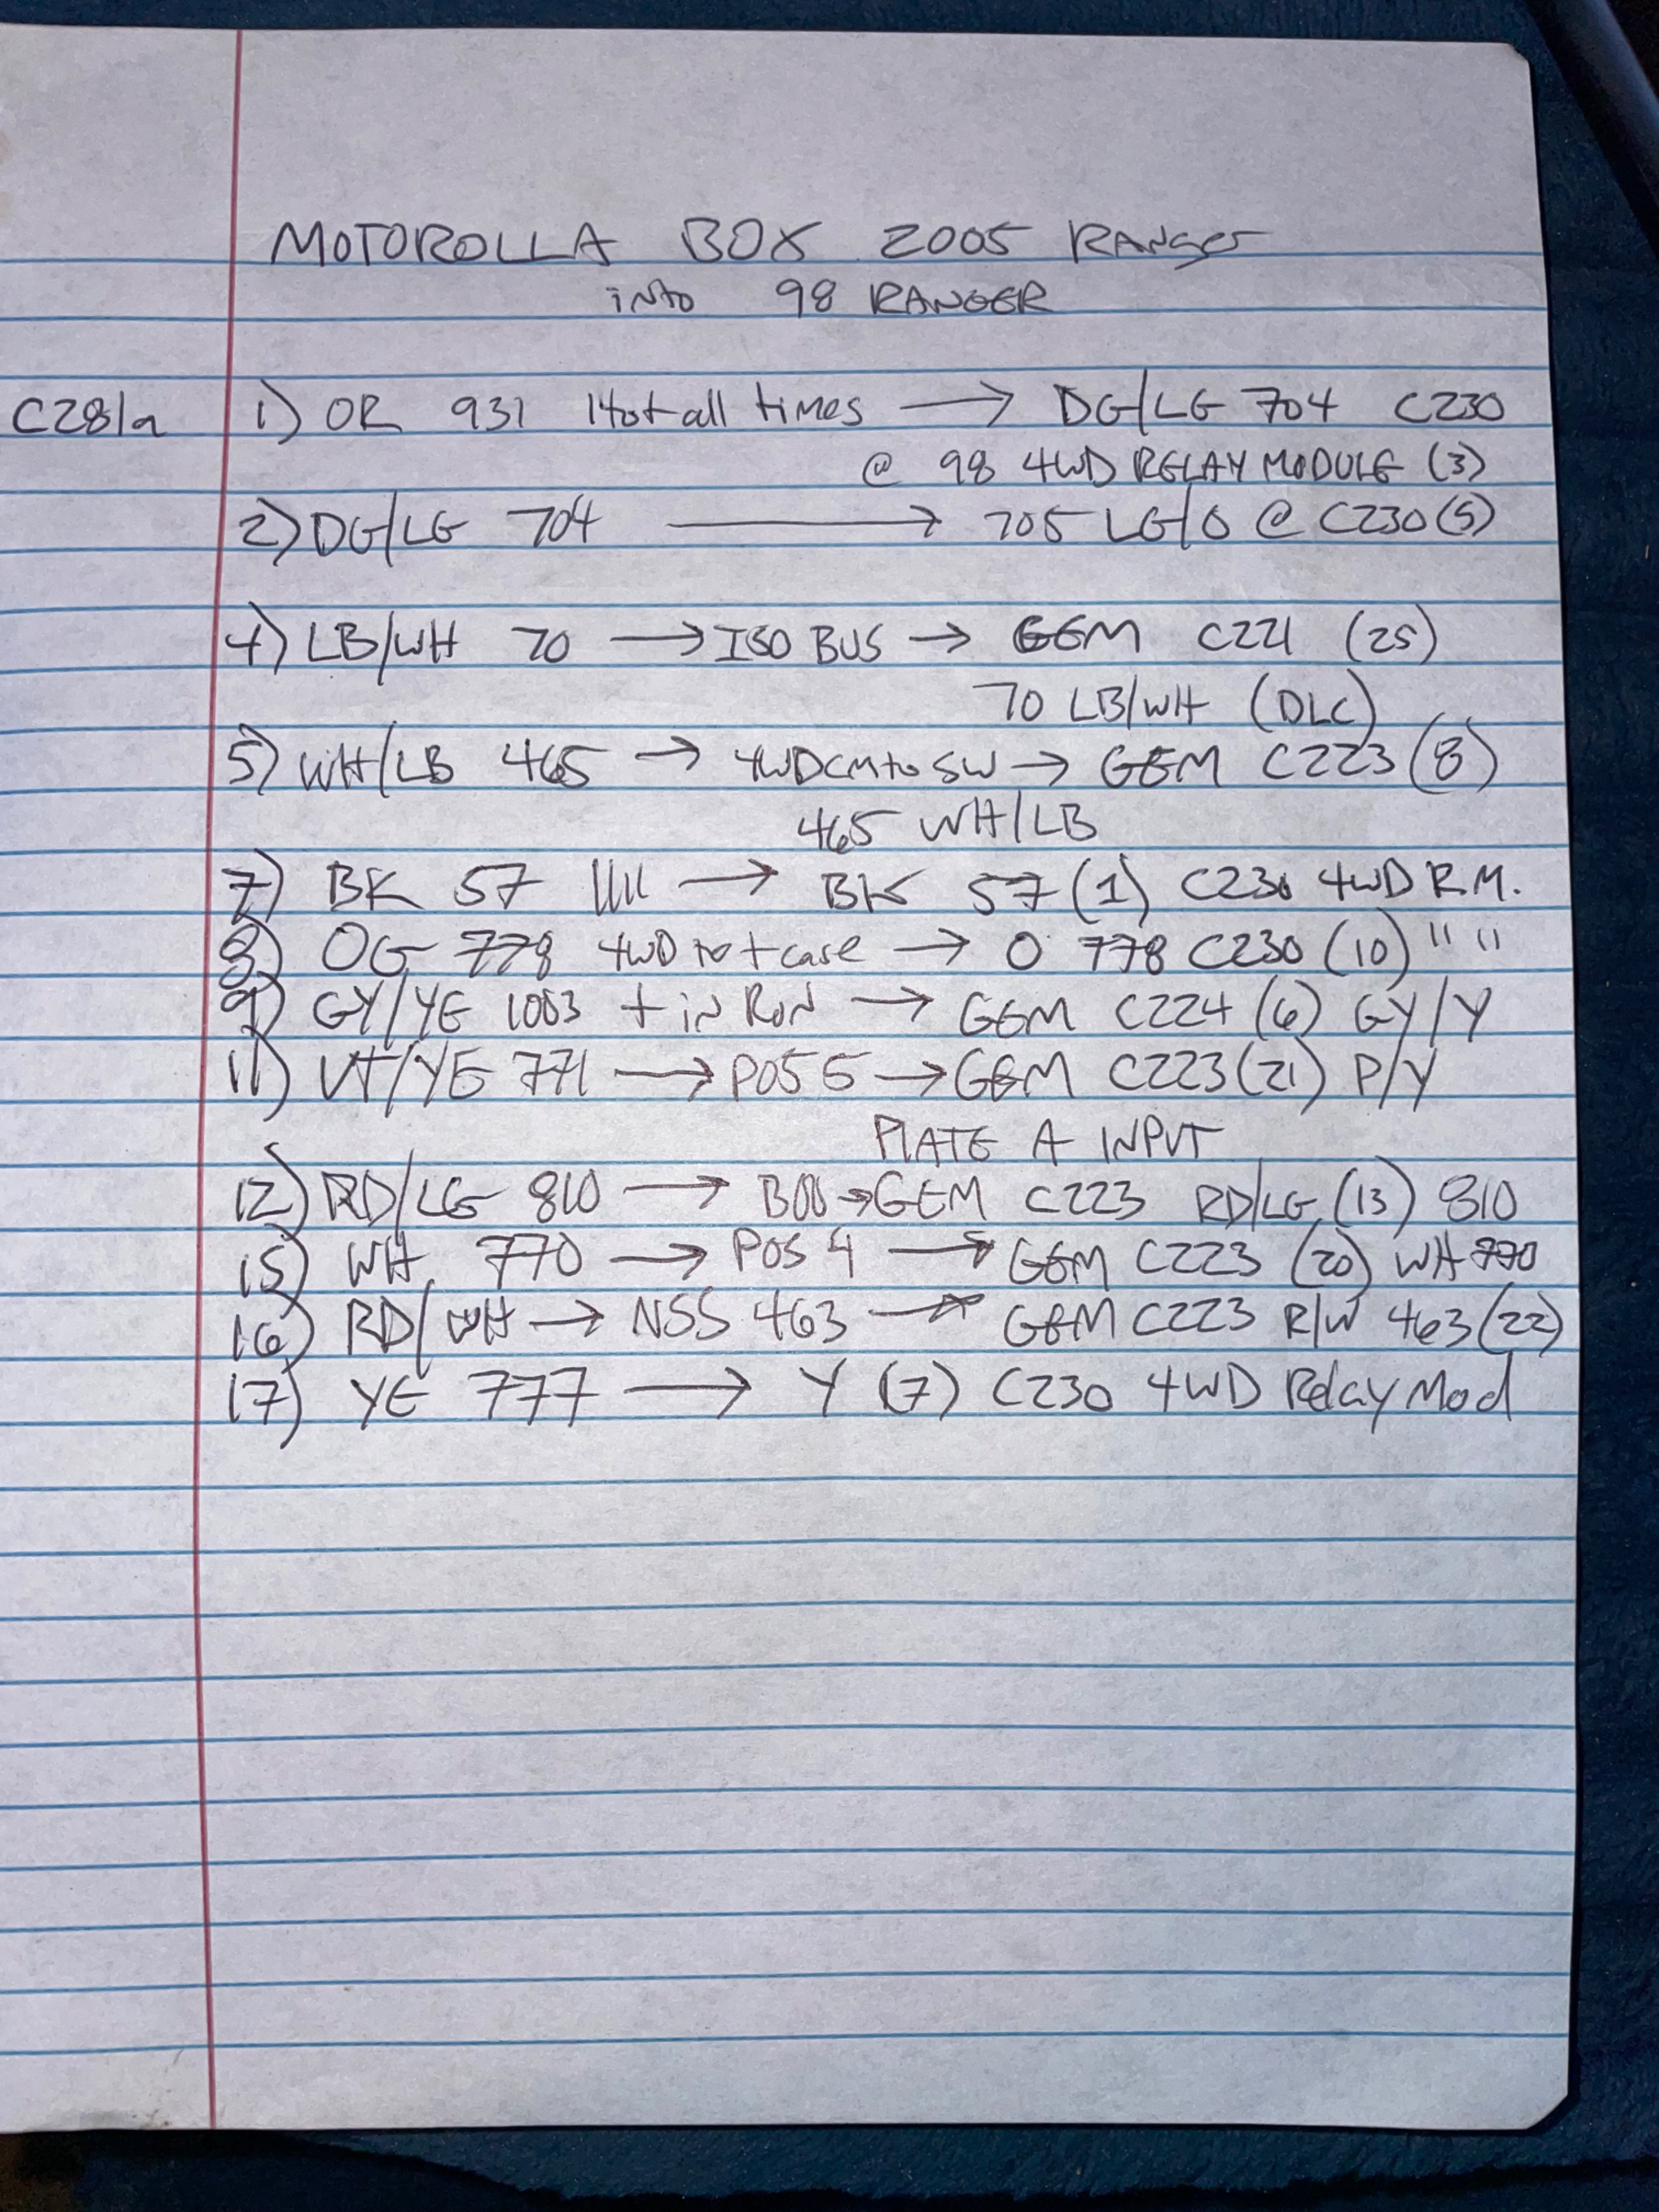 MOTOROLLA BOX 2005 RANGER
into 98 RANGER
C281a 1) OR 931 Hot all times → DG/LG 704 C230
@ 98 4WD RELAY MODULE (3)
2) DG/LG 704 → 705 LG/O @ C230(5)
4) LB/WH 70 → ISO BUS → GEM C221 (25)
70 LB/WH (DLC)
5) WH/LB 465 → 4WDCM to SW → GEM C223 (8)
465 WH/LB
7) BK 57 → BK 57 (1) C230 4WD R.M.
8) OG 778 4WD to t case → O 778 C230 (10) " "
9) GY/YE 1003 + in RUN → GEM C224 (6) GY/Y
11) VT/YE 771 → POS 5 → GEM C223 (21) P/Y
PLATE A INPUT
12) RD/LG 810 → BOO → GEM C223 RD/LG (13) 810
15) WH 770 → POS 4 → GEM C223 (20) WH 770
16) RD/WH → NSS 463 → GEM C223 R/W 463 (22)
17) YE 777 → Y (7) C230 4WD Relay Mod